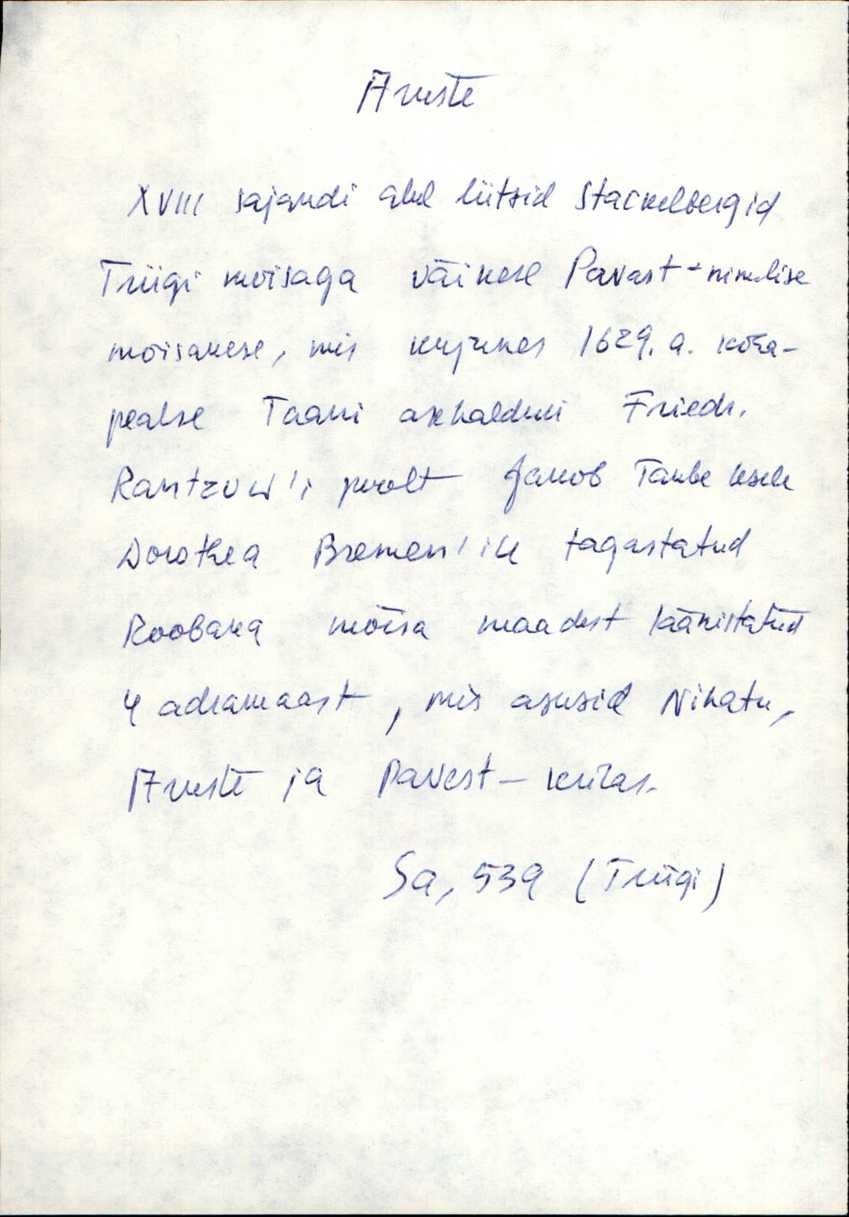 Aruste
XVIII sajandi algul liitsid Stackelbergid
Triigi mõisaga väikese Pavast-nimelise
mõisakese, mis kujunes 1629. a. koha-
pealse Taani asehalduri Friedr.
Rantzow'i poolt Jakob Taube lesele
Dorothea Bremen'ile tagastatud
Roobaka mõisa maadest käänistatud
4 adramaast, mis asusid Nihatu,
Aruste ja Pavest- külas.
Sa, 539 (Triigi)